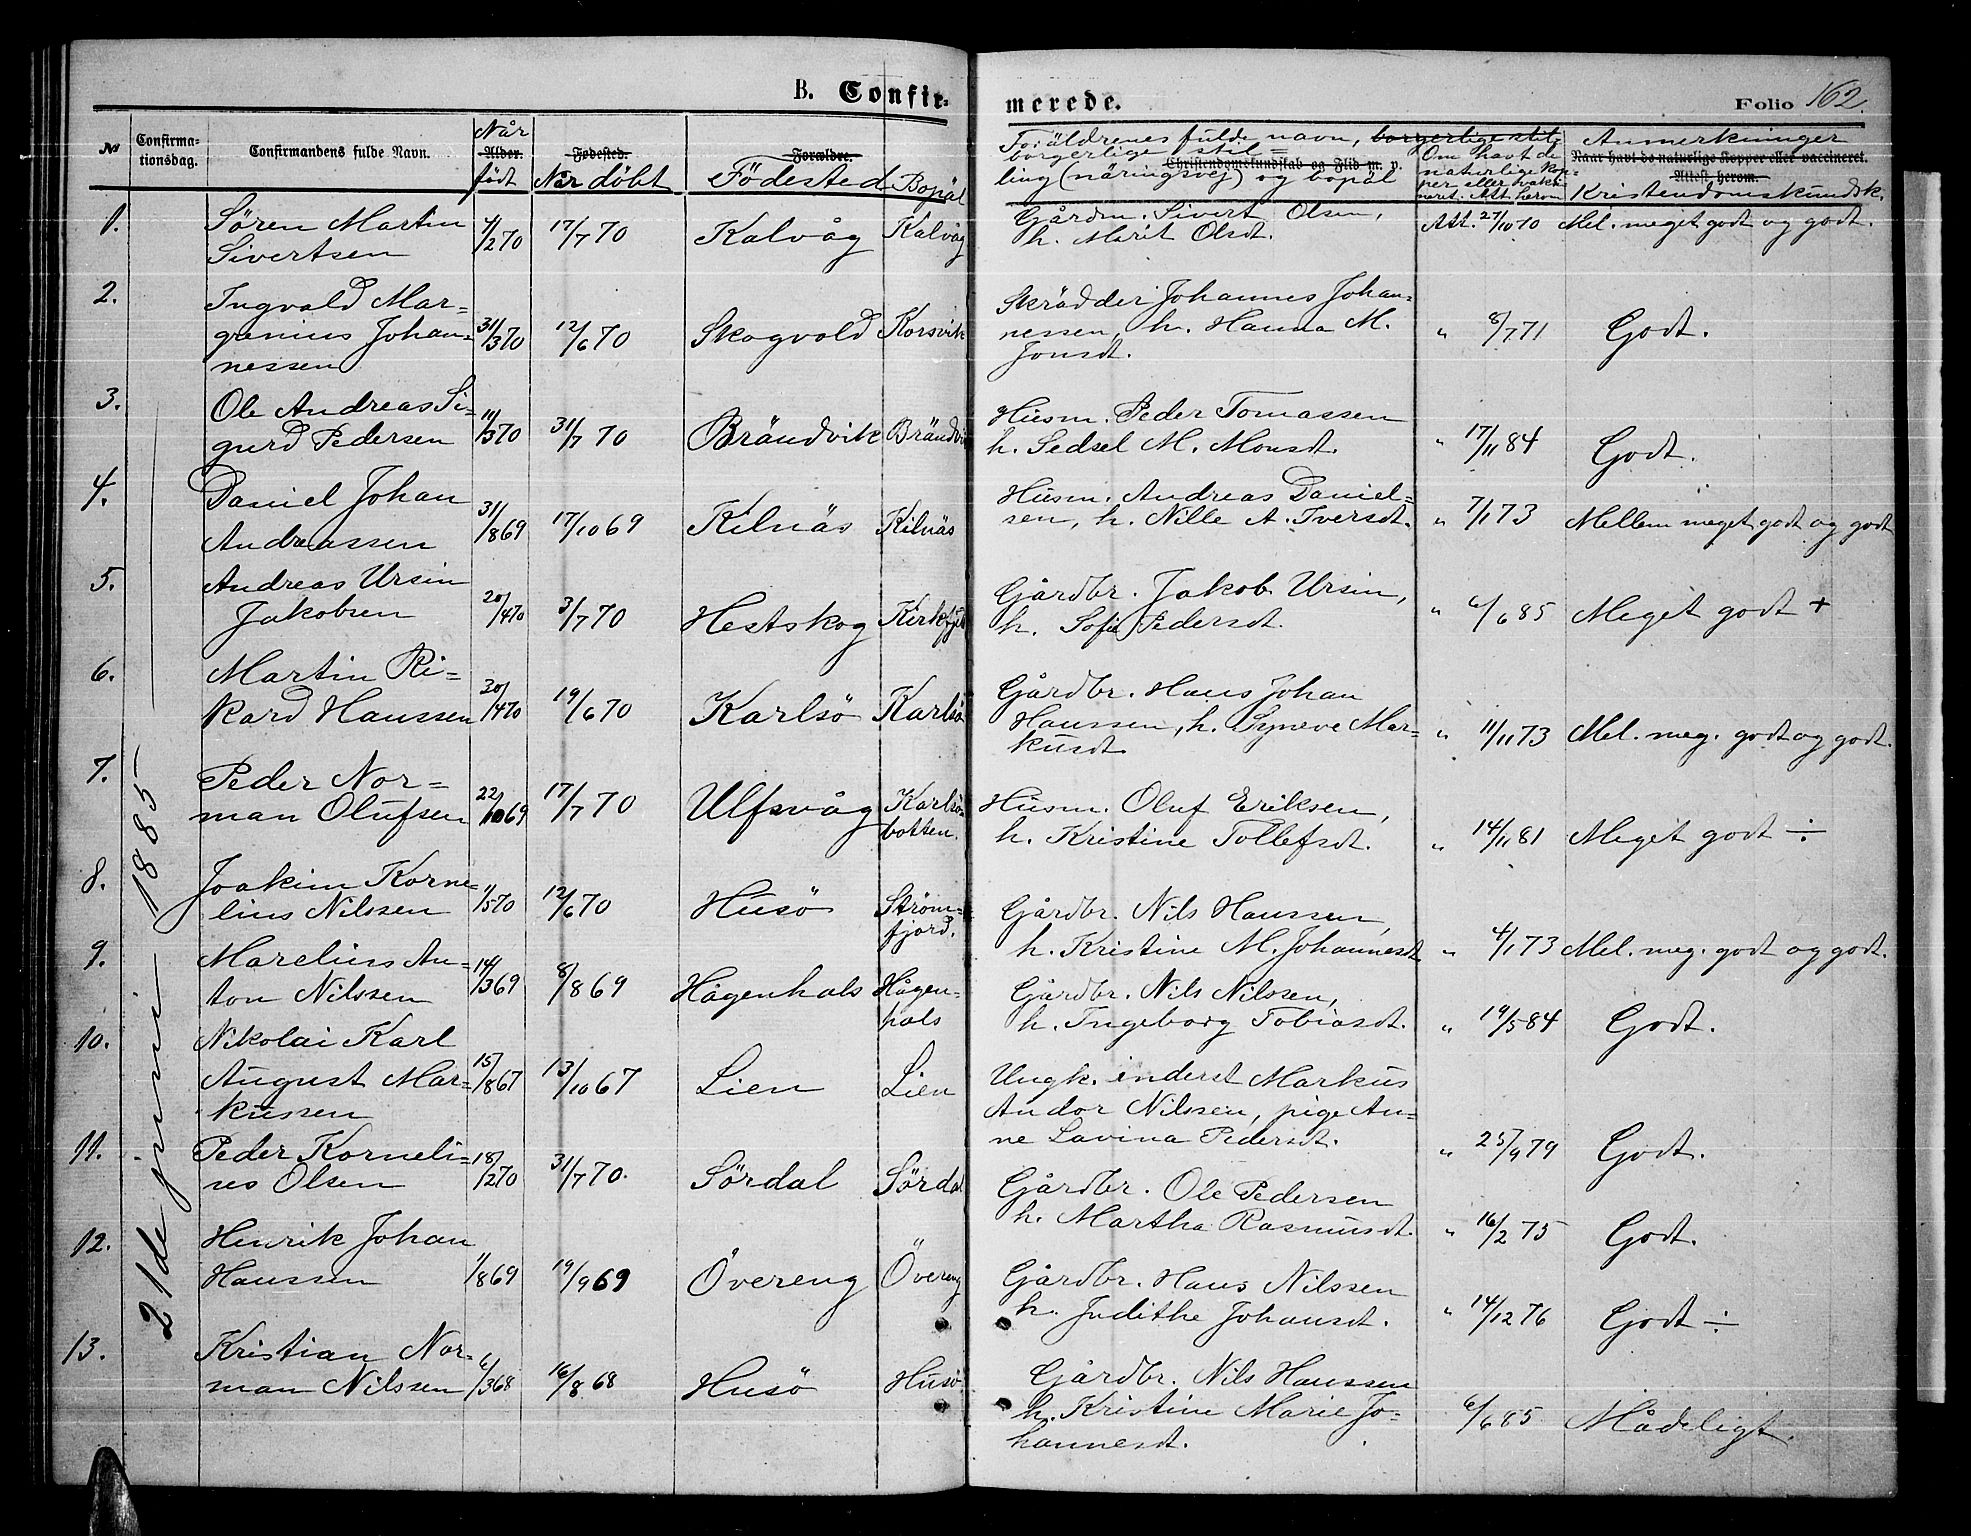 B. Confir- merede. Folio 162.
№ Confirmationsdag. Confirmandens fulde Navn. Når Alder. født Fødested. Når döbt Forældre. Födested Bopäl
Foräldrenes fulde navn, borgerlige stil
borgerlige stil=
Christendomskundskab og Flid m. v.
ling (näringsvej) og bopäl
Om havt de
naturlige kop=
per eller vaksi=
neret. Att. herom
Anmerkninger
Naar havt de naturlige Kopper eller vaccineret.
Attest herom.
Kristendomskundsk.
21de juni 1885
1. Sören Martin
Sivertsen 4/2 70 17/7 70 Kalvåg Kalvåg
Gårdm. Sivert Olsen,
h. Marit Olsdt. Att. 27/10 70 Mel. meget godt og godt.
2. Ingvald Mar-
grenius Johan=
nessen 31/3 70 12/6 70 Skogvold Korsvik
Skrädder Johannes Johan=
nessen, h. Hanna M.
Jonsdt. " 8/7 71 Godt.
3. Ole Andreas Si=
gurd Pedersen 10/3 70 31/7 70 Brändvik Brändvik
Husm. Peder Tomassen
h. Sedsel M. Monsdt. " 17/11 84 Godt.
4. Daniel Johan
Andreassen 31/8 69 17/10 69 Kilnäs Kilnäs
Husm. Andreas Daniel=
sen, h. Nille A. Iversdt. " 7/1 73 Mellem meget godt og godt
5. Andreas Ursin
Jakobsen 20/4 70 3/7 70 Hestskog
Gårdbr. Jakob Ursin,
h. Sofie Pedersdt. " 6/6 85 Meget godt +
6. Martin Ri=
kard Hanssen 30/4 70 19/6 70 Karlsö Karlsö
Gårdbr. Hans Johan
Hanssen, h. Synneve Mar=
kusdt. " 11/11 73 Mel. meg. godt og godt.
7. Peder Nor=
man Olufsen 22/10 69 17/7 70 Ulfsvåg Karlsö-
botten.
Husm. Oluf Eriksen,
h. Kristine Tollefsdt. " 14/11 81 Meget godt ÷
8. Joakim Korne=
lius Nilssen 11/5 70 12/6 70 Husö Ström=
fjord.
Gårdbr. Nils Hanssen,
h. Kristine M. Johannesdt " 4/1 73 Mel. meg. godt og godt.
9. Marelius An-
ton Nilssen 14/3 69 8/8 69 Hågenhals Hågen-
hals
Gårdbr. Nils Nilssen,
h. Ingeborg Tobiasdt. " 19/5 84 Godt.
10. Nikolai Karl
August Mar=
kussen 15/8 67 13/10 67 Lien Lien
Ungk. inderst Markus
Andor Nilssen, pige An-
ne Lavina Pedersdt. " 25/9 79 Godt.
11. Peder Korneli-
us Olsen 18/2 70 31/7 70. Sördal Sördal
Gårdbr. Ole Pedersen
h. Martha Rasmusdt. " 16/2 75 Godt.
12. Henrik Johan
Hanssen 11/8 69 19/9 69 Övereng Övereng
Gårdbr. Hans Nilssen
h. Judithe Johansdt. " 14/12 76 Godt ÷
13. Kristian Nor-
man Nilssen 6/3 68 16/8 68 Husö Husö
Gårdbr. Nils Hanssen
h. Kristine Marie Jo-
hannesdt. 6/6 85 Mådeligt.